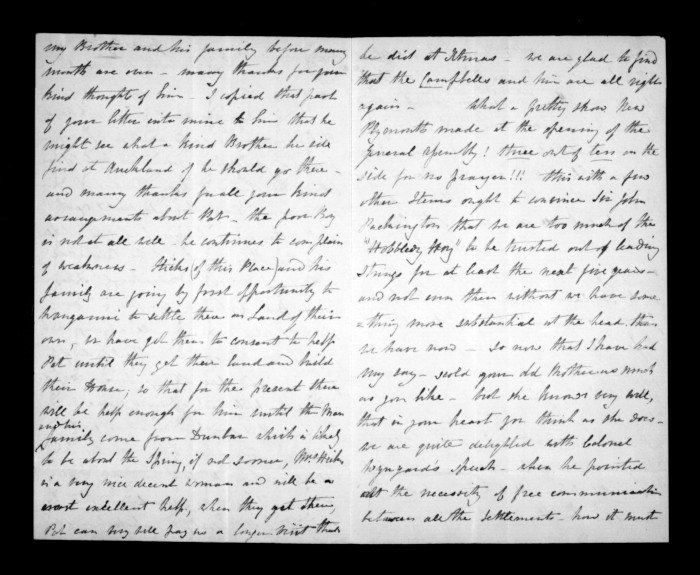 my Brother and his family before many
month are over - many thanks for your
kind thoughts of him - I copied that part
of your letter into mine to him that he
might see what a kind Brother he will
find at Auckland if he should go there -
and many thanks for all your kind
arrangements about Pat - the poor Boy
is not at all well he continues to complain
of weakness - Hicks (of this Place) and his
family are going by first opportunity to
Wanganui to settle there on Land of their
own, we have got them to consent to help
Pat until they get their land and build
their House, so that for the present there
will be help enough for him until the Man
and his
family come from Dunbar which is likely
to be about the Spring, if not sooner, Mrs Hicks
is a very nice decent woman and will be a
most excellent help, when they get there,
Pat can very well pay us a longer visit than
he did at Xtmas - we are glad to find
that the Campbells and him are all right
again - What a pretty show New
Plymouth made at the opening of the
General Assembly! three out of ten on the
side for no prayer!!! this with a few
other Items ought to convince Sir John
Packington that we are too much of the
"Hobbledy Hoy" to be trusted out of leading
Strings for at least the next five years -
and not even then without we have some
thing more substantial at the head, than
we have now - so now that I have had
my say - scold your old Mother as much
as you like - but she knows very well,
that in your heart you think as she does -
we are quite delighted with Colonel
Wynyards Speech - when he pointed
out the necessity of free communication
between all the settlements - how it must